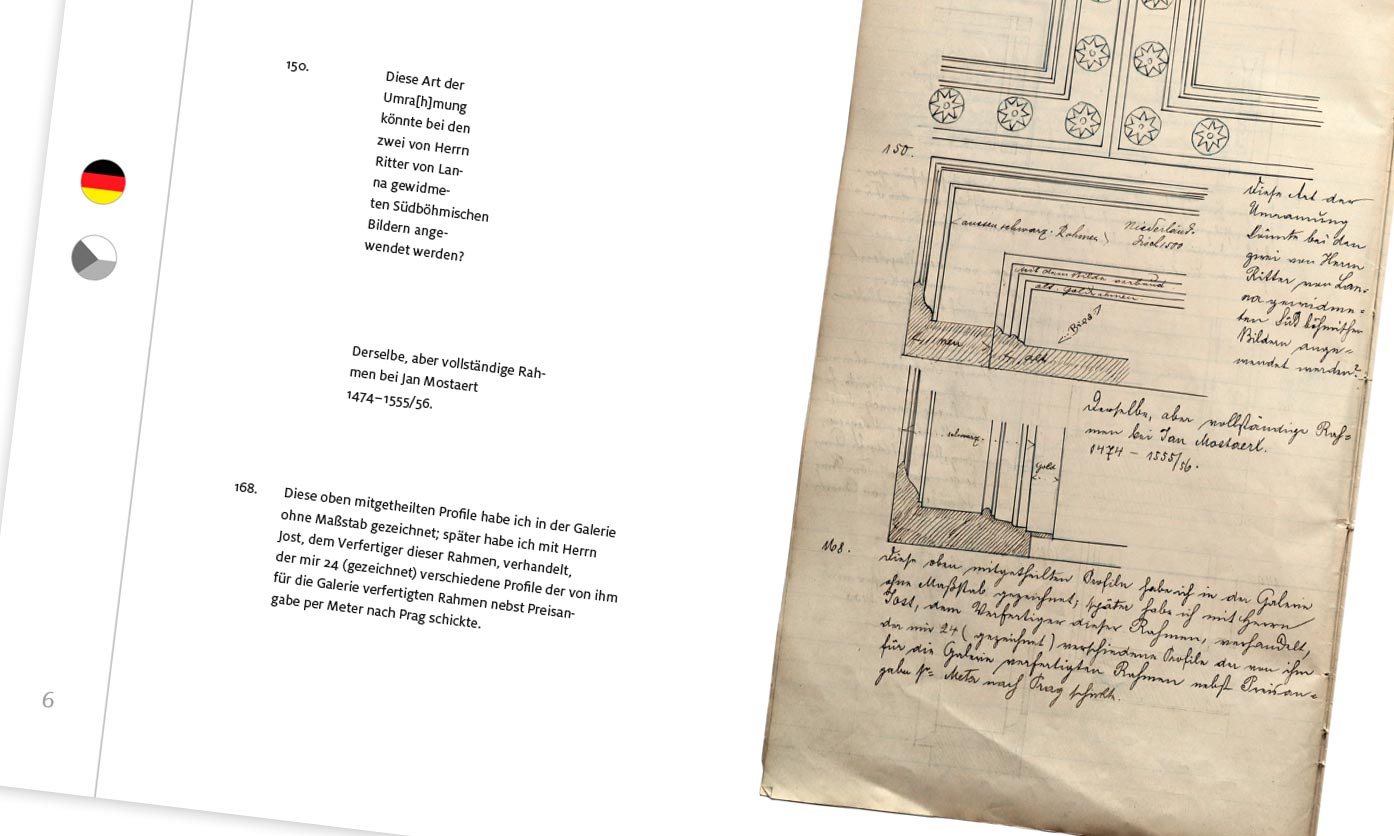 150.
Diese Art der
Umra[h]mung
könnte bei den
zwei von Herrn
Ritter von Lan-
na gewidme-
ten Südböhmischen
Bildern ange-
wendet werden?
Derselbe, aber vollständige Rah-
men bei Jan Mostaert
1474–1555/56.
168. Diese oben mitgetheilten Profile habe ich in der Galerie
ohne Maßstab gezeichnet; später habe ich mit Herrn
Jost, dem Verfertiger dieser Rahmen, verhandelt,
der mir 24 (gezeichnet) verschiedene Profile der von ihm
für die Galerie verfertigten Rahmen nebst Preisan-
gabe per Meter nach Prag schickte.
6
150.
Diese Art der
Umramung
könnte bei den
zwei von Herrn
Ritter von Lan-
na gewidme-
ten Südböhmischen
Bildern ange-
wendet werden?
aussen schwarz. Rahmen
Niederländ-
isch 1500
mit dem Bilde verbund
alt. Goldrahmen
Bild
neu
alt
Derselbe, aber vollständige Rah-
men bei Jan Mostaert.
1474 – 1555/56.
schwarz.
Gold
168.
Diese oben mitgetheilten Profile habe ich in der Galerie
ohne Maßstab gezeichnet; später habe ich mit Herrn
Jost, dem Verfertiger dieser Rahmen, verhandelt,
der mir 24 (gezeichnet) verschiedene Profile der von ihm
für die Galerie verfertigten Rahmen nebst Preisan-
gabe pr Meter nach Prag schickte.